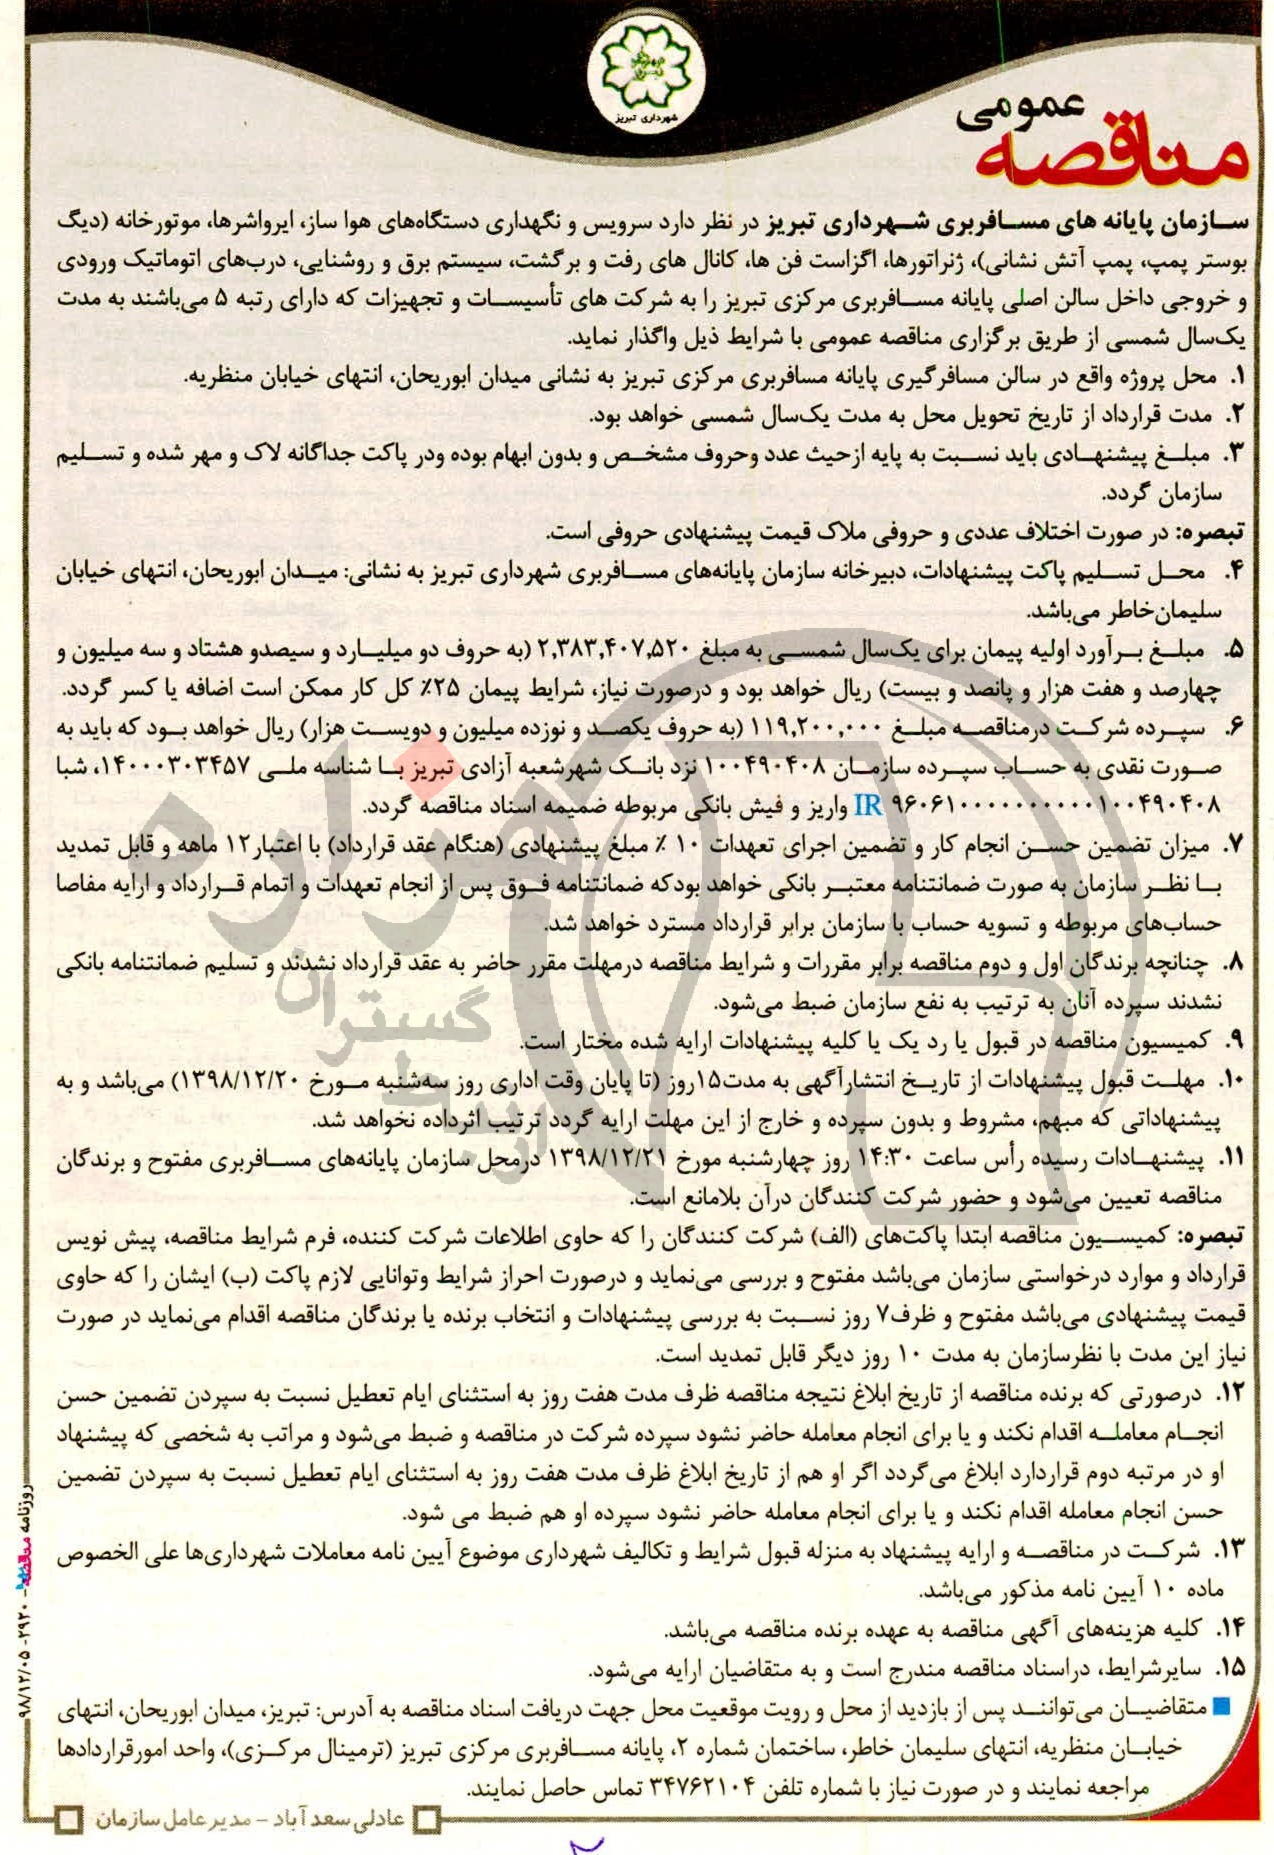 شهرداری تبریز
مناقصه عمومی
سازمان پایانه های مسافربری شهرداری تبریز در نظر دارد سرویس و نگهداری دستگاه‌های هوا ساز، ایرواشرها، موتورخانه (دیگ
بوستر پمپ، پمپ آتش نشانی)، ژنراتورها، اگزاست فن ها، کانال های رفت و برگشت، سیستم برق و روشنایی، درب‌های اتوماتیک ورودی
و خروجی داخل سالن اصلی پایانه مسافربری مرکزی تبریز را به شرکت های تأسیسات و تجهیزات که دارای رتبه ۵ می‌باشند به مدت
یک‌سال شمسی از طریق برگزاری مناقصه عمومی با شرایط ذیل واگذار نماید.
۱. محل پروژه واقع در سالن مسافرگیری پایانه مسافربری مرکزی تبریز به نشانی میدان ابوریحان، انتهای خیابان منظریه.
۲. مدت قرارداد از تاریخ تحویل محل به مدت یک‌سال شمسی خواهد بود.
۳. مبلغ پیشنهادی باید نسبت به پایه ازحیث عدد وحروف مشخص و بدون ابهام بوده ودر پاکت جداگانه لاک و مهر شده و تسلیم
سازمان گردد.
تبصره: در صورت اختلاف عددی و حروفی ملاک قیمت پیشنهادی حروفی است.
۴. محل تسلیم پاکت پیشنهادات، دبیرخانه سازمان پایانه‌های مسافربری شهرداری تبریز به نشانی: میدان ابوریحان، انتهای خیابان
سلیمان‌خاطر می‌باشد.
۵. مبلغ برآورد اولیه پیمان برای یک‌سال شمسی به مبلغ ۲,۳۸۳,۴۰۷,۵۲۰ (به حروف دو میلیارد و سیصدو هشتاد و سه میلیون و
چهارصد و هفت هزار و پانصد و بیست) ریال خواهد بود و درصورت نیاز، شرایط پیمان ۲۵٪ کل کار ممکن است اضافه یا کسر گردد.
۶. سپرده شرکت درمناقصه مبلغ ۱۱۹,۲۰۰,۰۰۰ (به حروف یکصد و نوزده میلیون و دویست هزار) ریال خواهد بود که باید به
صورت نقدی به حساب سپرده سازمان ۱۰۰۴۹۰۴۰۸ نزد بانک شهرشعبه آزادی تبریز با شناسه ملی ۱۴۰۰۰۳۰۳۴۵۷، شبا
IR ۹۶۰۶۱۰۰۰۰۰۰۰۰۰۰۰۱۰۰۴۹۰۴۰۸ واریز و فیش بانکی مربوطه ضمیمه اسناد مناقصه گردد.
۷. میزان تضمین حسن انجام کار و تضمین اجرای تعهدات ۱۰ ٪ مبلغ پیشنهادی (هنگام عقد قرارداد) با اعتبار۱۲ ماهه و قابل تمدید
با نظر سازمان به صورت ضمانتنامه معتبر بانکی خواهد بودکه ضمانتنامه فوق پس از انجام تعهدات و اتمام قرارداد و ارایه مفاصا
حساب‌های مربوطه و تسویه حساب با سازمان برابر قرارداد مسترد خواهد شد.
۸. چنانچه برندگان اول و دوم مناقصه برابر مقررات و شرایط مناقصه درمهلت مقرر حاضر به عقد قرارداد نشدند و تسلیم ضمانتنامه بانکی
نشدند سپرده آنان به ترتیب به نفع سازمان ضبط می‌شود.
۹. کمیسیون مناقصه در قبول یا رد یک یا کلیه پیشنهادات ارایه شده مختار است.
۱۰. مهلت قبول پیشنهادات از تاریخ انتشارآگهی به مدت۱۵روز (تا پایان وقت اداری روز سه‌شنبه مورخ ۱۳۹۸/۱۲/۲۰) می‌باشد و به
پیشنهاداتی که مبهم، مشروط و بدون سپرده و خارج از این مهلت ارایه گردد ترتیب اثرداده نخواهد شد.
۱۱. پیشنهادات رسیده رأس ساعت ۱۴:۳۰ روز چهارشنبه مورخ ۱۳۹۸/۱۲/۲۱ درمحل سازمان پایانه‌های مسافربری مفتوح و برندگان
مناقصه تعیین می‌شود و حضور شرکت کنندگان درآن بلامانع است.
تبصره: کمیسیون مناقصه ابتدا پاکت‌های (الف) شرکت کنندگان را که حاوی اطلاعات شرکت کننده، فرم شرایط مناقصه، پیش نویس
قرارداد و موارد درخواستی سازمان می‌باشد مفتوح و بررسی می‌نماید و درصورت احراز شرایط وتوانایی لازم پاکت (ب) ایشان را که حاوی
قیمت پیشنهادی می‌باشد مفتوح و ظرف۷ روز نسبت به بررسی پیشنهادات و انتخاب برنده یا برندگان مناقصه اقدام می‌نماید در صورت
نیاز این مدت با نظرسازمان به مدت ۱۰ روز دیگر قابل تمدید است.
۱۲. درصورتی که برنده مناقصه از تاریخ ابلاغ نتیجه مناقصه ظرف مدت هفت روز به استثنای ایام تعطیل نسبت به سپردن تضمین حسن
انجام معامله اقدام نکند و یا برای انجام معامله حاضر نشود سپرده شرکت در مناقصه و ضبط می‌شود و مراتب به شخصی که پیشنهاد
او در مرتبه دوم قراردارد ابلاغ می‌گردد اگر او هم از تاریخ ابلاغ ظرف مدت هفت روز به استثنای ایام تعطیل نسبت به سپردن تضمین
حسن انجام معامله اقدام نکند و یا برای انجام معامله حاضر نشود سپرده او هم ضبط می شود.
۱۳. شرکت در مناقصه و ارایه پیشنهاد به منزله قبول شرایط و تکالیف شهرداری موضوع آیین نامه معاملات شهرداری‌ها علی الخصوص
ماده ۱۰ آیین نامه مذکور می‌باشد.
۱۴. کلیه هزینه‌های آگهی مناقصه به عهده برنده مناقصه می‌باشد.
۱۵. سایرشرایط، دراسناد مناقصه مندرج است و به متقاضیان ارایه می‌شود.
متقاضیان می‌توانند پس از بازدید از محل و رویت موقعیت محل جهت دریافت اسناد مناقصه به آدرس: تبریز، میدان ابوریحان، انتهای
خیابان منظریه، انتهای سلیمان خاطر، ساختمان شماره ۲، پایانه مسافربری مرکزی تبریز (ترمینال مرکزی)، واحد امورقراردادها
مراجعه نمایند و در صورت نیاز با شماره تلفن ۳۴۷۶۲۱۰۴ تماس حاصل نمایند.
عادلی سعد آباد - مدیرعامل سازمان
روزنامه مناقصه - ۲۹۲۰- ۹۸/۱۲/۰۵